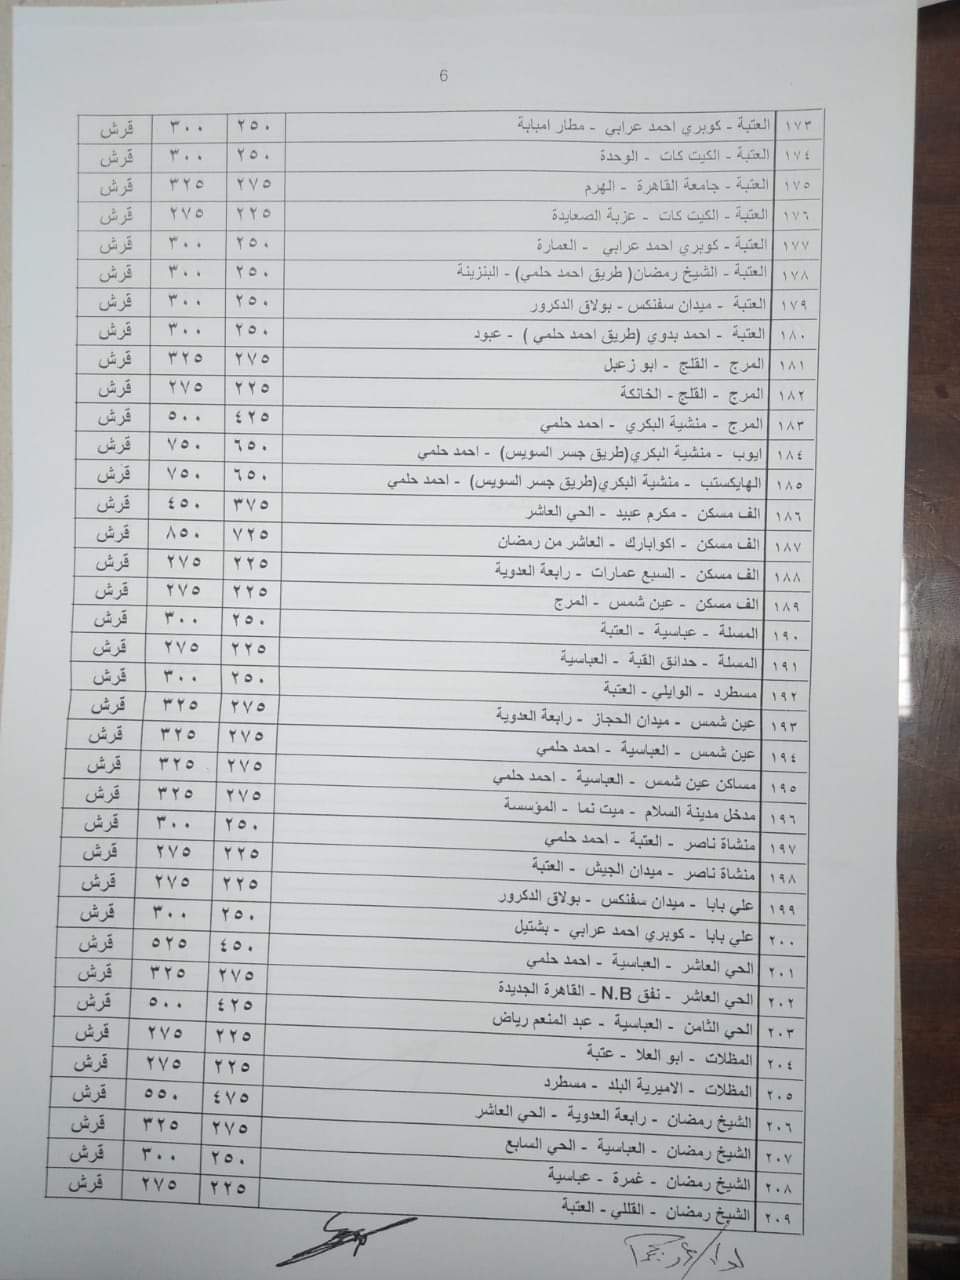 6
١٧٣ العتبة - كوبري احمد عرابي - مطار امبابة ٢٥٠ ٣٠٠ قرش
١٧٤ العتبة - الكيت كات - الوحدة ٢٥٠ ٣٠٠ قرش
١٧٥ العتبة - جامعة القاهرة - الهرم ٢٧٥ ٣٢٥ قرش
١٧٦ العتبة - الكيت كات - عزبة الصعايدة ٢٢٥ ٢٧٥ قرش
١٧٧ العتبة - كوبري احمد عرابي - العمارة ٢٥٠ ٣٠٠ قرش
١٧٨ العتبة - الشيخ رمضان( طريق احمد حلمي) - البنزينة ٢٥٠ ٣٠٠ قرش
١٧٩ العتبة - ميدان سفنكس - بولاق الدكرور ٢٥٠ ٣٠٠ قرش
١٨٠ العتبة - احمد بدوي (طريق احمد حلمي ) - عبود ٢٥٠ ٣٠٠ قرش
١٨١ المرج - القلج - ابو زعبل ٢٧٥ ٣٢٥ قرش
١٨٢ المرج - القلج - الخانكة ٢٢٥ ٢٧٥ قرش
١٨٣ المرج - منشية البكري - احمد حلمي ٤٢٥ ٥٠٠ قرش
١٨٤ ايوب - منشية البكري(طريق جسر السويس) - احمد حلمي ٦٥٠ ٧٥٠ قرش
١٨٥ الهايكستب - منشية البكري(طريق جسر السويس) - احمد حلمي ٦٥٠ ٧٥٠ قرش
١٨٦ الف مسكن - مكرم عبيد - الحي العاشر ٣٧٥ ٤٥٠ قرش
١٨٧ الف مسكن - اكوابارك - العاشر من رمضان ٧٢٥ ٨٥٠ قرش
١٨٨ الف مسكن - السبع عمارات - رابعة العدوية ٢٢٥ ٢٧٥ قرش
١٨٩ الف مسكن - عين شمس - المرج ٢٢٥ ٢٧٥ قرش
١٩٠ المسلة - عباسية - العتبة ٢٥٠ ٣٠٠ قرش
١٩١ المسلة - حدائق القبة - العباسية ٢٢٥ ٢٧٥ قرش
١٩٢ مسطرد - الوايلي - العتبة ٢٥٠ ٣٠٠ قرش
١٩٣ عين شمس - ميدان الحجاز - رابعة العدوية ٢٧٥ ٣٢٥ قرش
١٩٤ عين شمس - العباسية - احمد حلمي ٢٧٥ ٣٢٥ قرش
١٩٥ مساكن عين شمس - العباسية - احمد حلمي ٢٧٥ ٣٢٥ قرش
١٩٦ مدخل مدينة السلام - ميت نما - المؤسسة ٢٧٥ ٣٢٥ قرش
١٩٧ منشاة ناصر - العتبة - احمد حلمي ٢٥٠ ٣٠٠ قرش
١٩٨ منشاة ناصر - ميدان الجيش - العتبة ٢٢٥ ٢٧٥ قرش
١٩٩ علي بابا - ميدان سفنكس - بولاق الدكرور ٢٢٥ ٢٧٥ قرش
٢٠٠ علي بابا - كوبري احمد عرابي - بشتيل ٢٥٠ ٣٠٠ قرش
٢٠١ الحي العاشر - العباسية - احمد حلمي ٤٥٠ ٥٢٥ قرش
٢٠٢ الحي العاشر - نفق N.B - القاهرة الجديدة ٢٧٥ ٣٢٥ قرش
٢٠٣ الحي الثامن - العباسية - عبد المنعم رياض ٤٢٥ ٥٠٠ قرش
٢٠٤ المظلات - ابو العلا - عتبة ٢٢٥ ٢٧٥ قرش
٢٠٥ المظلات - الاميرية البلد - مسطرد ٢٢٥ ٢٧٥ قرش
٢٠٦ الشيخ رمضان - رابعة العدوية - الحي العاشر ٤٧٥ ٥٥٠ قرش
٢٠٧ الشيخ رمضان - العباسية - الحي السابع ٢٧٥ ٣٢٥ قرش
٢٠٨ الشيخ رمضان - غمرة - عباسية ٢٥٠ ٣٠٠ قرش
٢٠٩ الشيخ رمضان - القللي - العتبة ٢٢٥ ٢٧٥ قرش